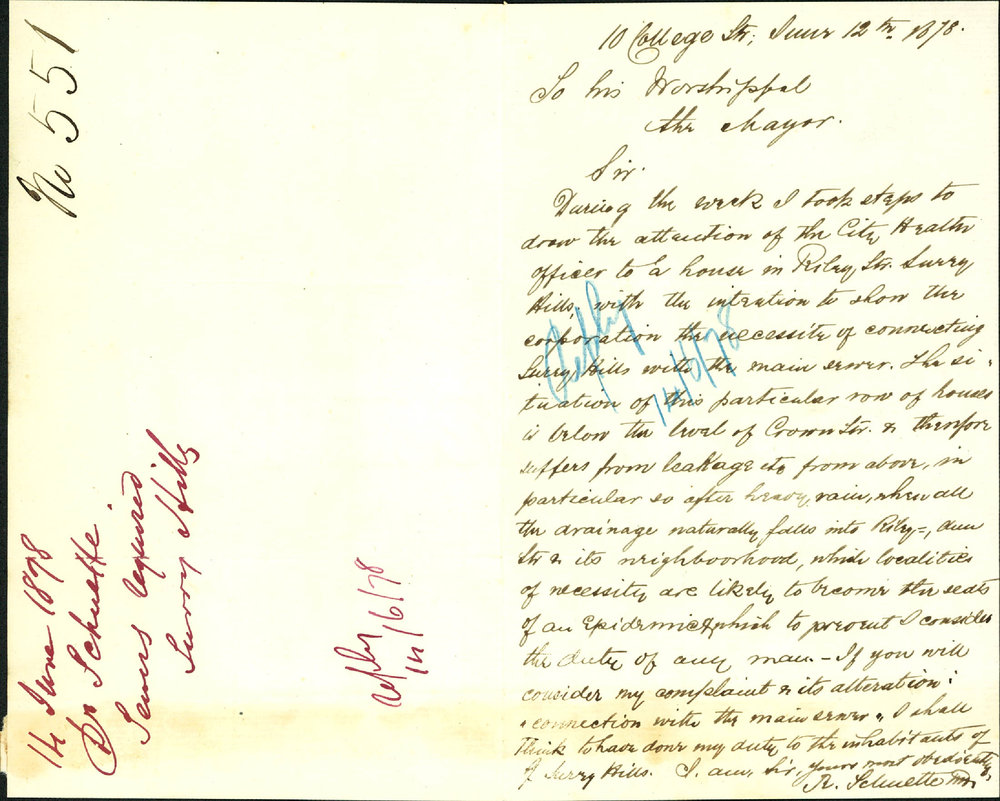 No 551
14 June 1878
Dr Schuette.
Sewers required
Surry Hills
Reply
14/6/78
10 College Str; June 12th 1878.
To his Worshippal
the Mayor.
Sir.
During the week I took steps to
draw the attention of the City Health
Officer to a house in Riley Str. Surry
Hills, with the intention to show the
corporation the necessite of connecting
Surry Hills with the main sewer. The si-
tuation of this particular row of houses
is below the level of Crown Str. & therefore
suffers from leakage etc from above, in
particular so after heavy rain, when all
the drainage naturally falls into Riley=,
Str & its neighboorhood, which localities
of necessity are likely to become the seats
of an Epidemic, which to prevent I consider
the duty of any man. - If you will
consider my complaint & its alteration:
"connection with the main sewer", I shall
think to have done my duty to the inhabitants of
of Surry Hills. I. am, Sir, yours most obediently,
R. Schuette
Reply
14/6/78